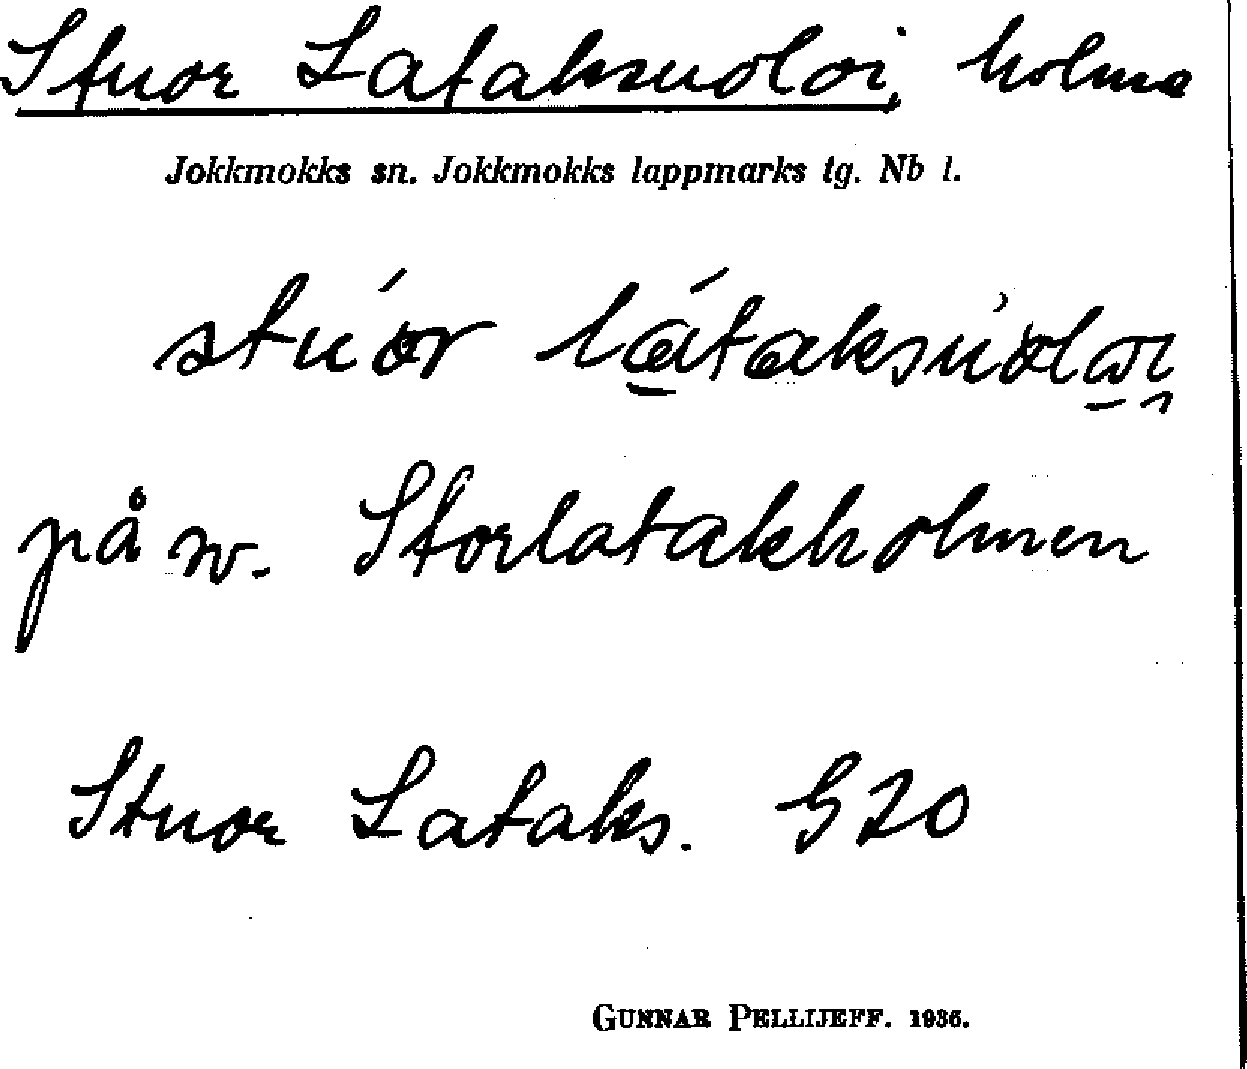 Stuor Lataksuoloi, holme
Jokkmokks sn. Jokkmokks lappmarks tg. Nb l.
stúor látaksúolai
på sv. Storlatakholmen
Stuor Lataks. G20
GUNNAR PELLIJEFF. 1936.